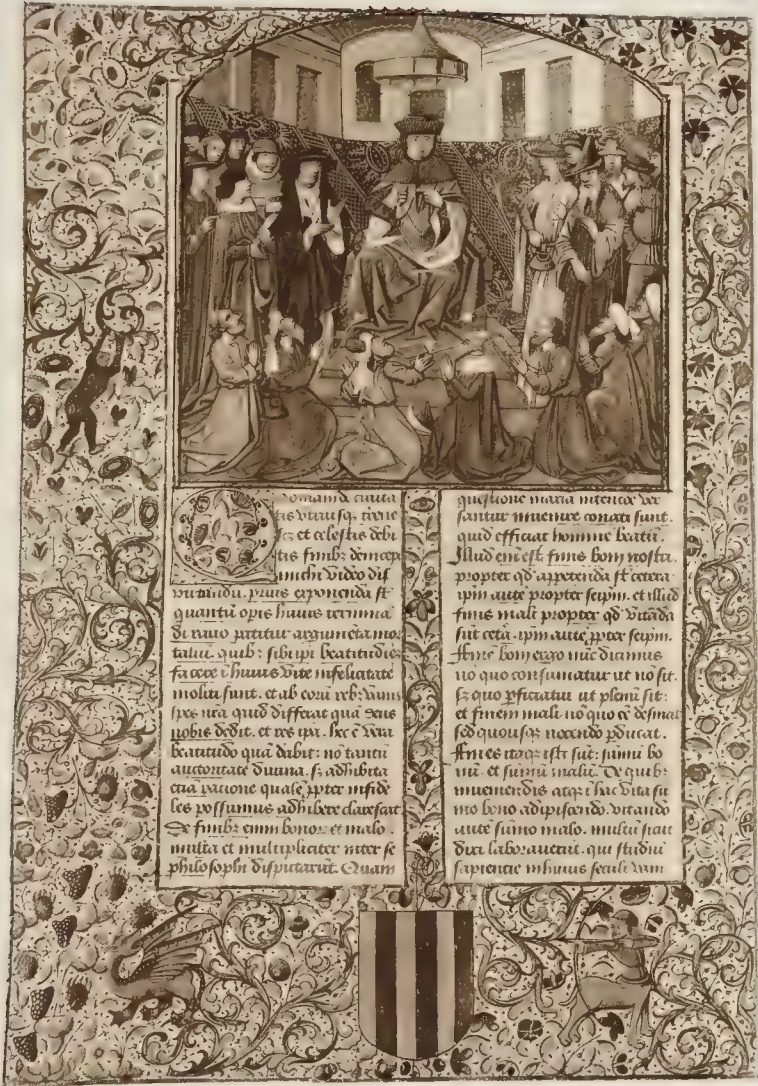 Quoniam de civita
tis utriusq; terre
ne et celestis debi
tis finibꝫ deincep
michi video dis
putandū. prius exponenda sūt
quantū operis huius termina
di ratio patitur argumēta mor
taliū. quibꝫ sibi ipi beatitudinē
facere ī huius vite infelicitate
moliti sunt. et ab eorū rebꝫ vanis
spes nr̄a quid differat quā deus
nobis dedit. et res ipa. hec ē vera
beatitudo quā dabit: nō tantū
auctoritate divina. sꝫ adhibita
etiā ratione quale ꝓpter infide
les possumus adhibere clarescat
De finibꝫ enim bonoꝝ et malo
multa et multipliciter inter se
philosophi disputarūt. Quam
questione maxīa intencōe ver
santur invenire conati sunt.
quid efficiat hominē beatū.
Illud em̄ est finis boni nostri.
propter qd̄ appetenda sūt cetera
ipm̄ autē propter seipm̄. et illud
finis mali propter qd̄ vitāda
sūt cetā. ipm̄ autē ꝓpter seipm̄.
Finē boni ergo nūc dicimus
nō quo consumatur ut nō sit.
sꝫ quo ꝑficiatur ut plenū sit:
et finem mali nō quo eē desinat
sed quousqꝫ nocendo ꝑducat.
Fines itaqꝫ isti sūt: sūmū bo
nū et sūmū malū. De quibꝫ
inveniendis atqꝫ ī hac vita sū
mo bono adipiscendo. vitando
autē sūmo malo. multū sicut
dixi laboraverūt. qui studiū
sapientie in huius seculi vani